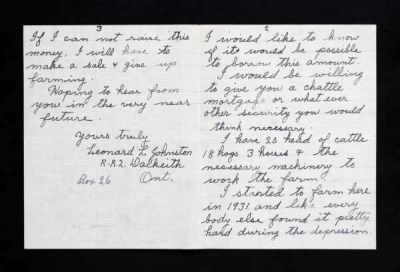 2
I would like to know
if it would be possible
to borrow this amount.
I would be willing
to give you a chattle
mortgage or what ever
other security you would
think necessary.
I have 20 head of cattle
18 hogs 3 horses & the
necessary machinery to
work the farm.
I started to farm here
in 1931 and like every
body else found it pretty
hard during the depression.
3
If I can not raise this
money, I will have to
make a sale & give up
farming.
Hoping to hear from
you in the very near
future
Yours truly
Leonard L. Johnston
R.R.2. Dalkeith
Box 26 Ont.